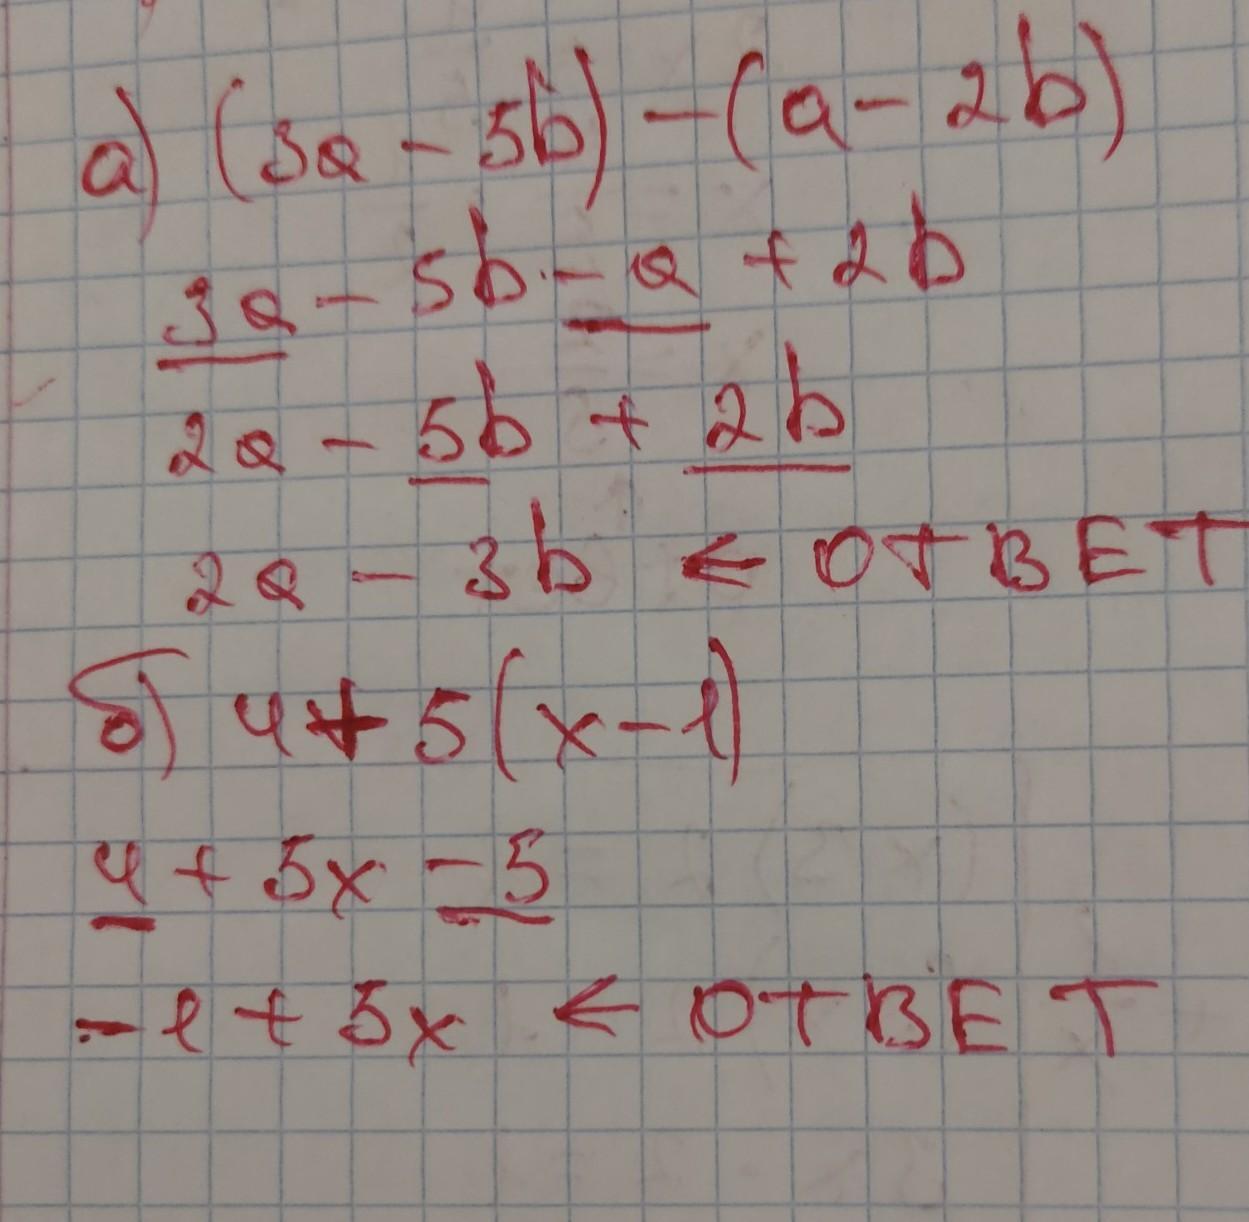 а) (3a - 5b) - (a - 2b)
3a - 5b - a + 2b
2a - 5b + 2b
2a - 3b ← ОТВЕТ
б) 4 + 5(x - 1)
4 + 5x - 5
- 1 + 5x ← ОТВЕТ